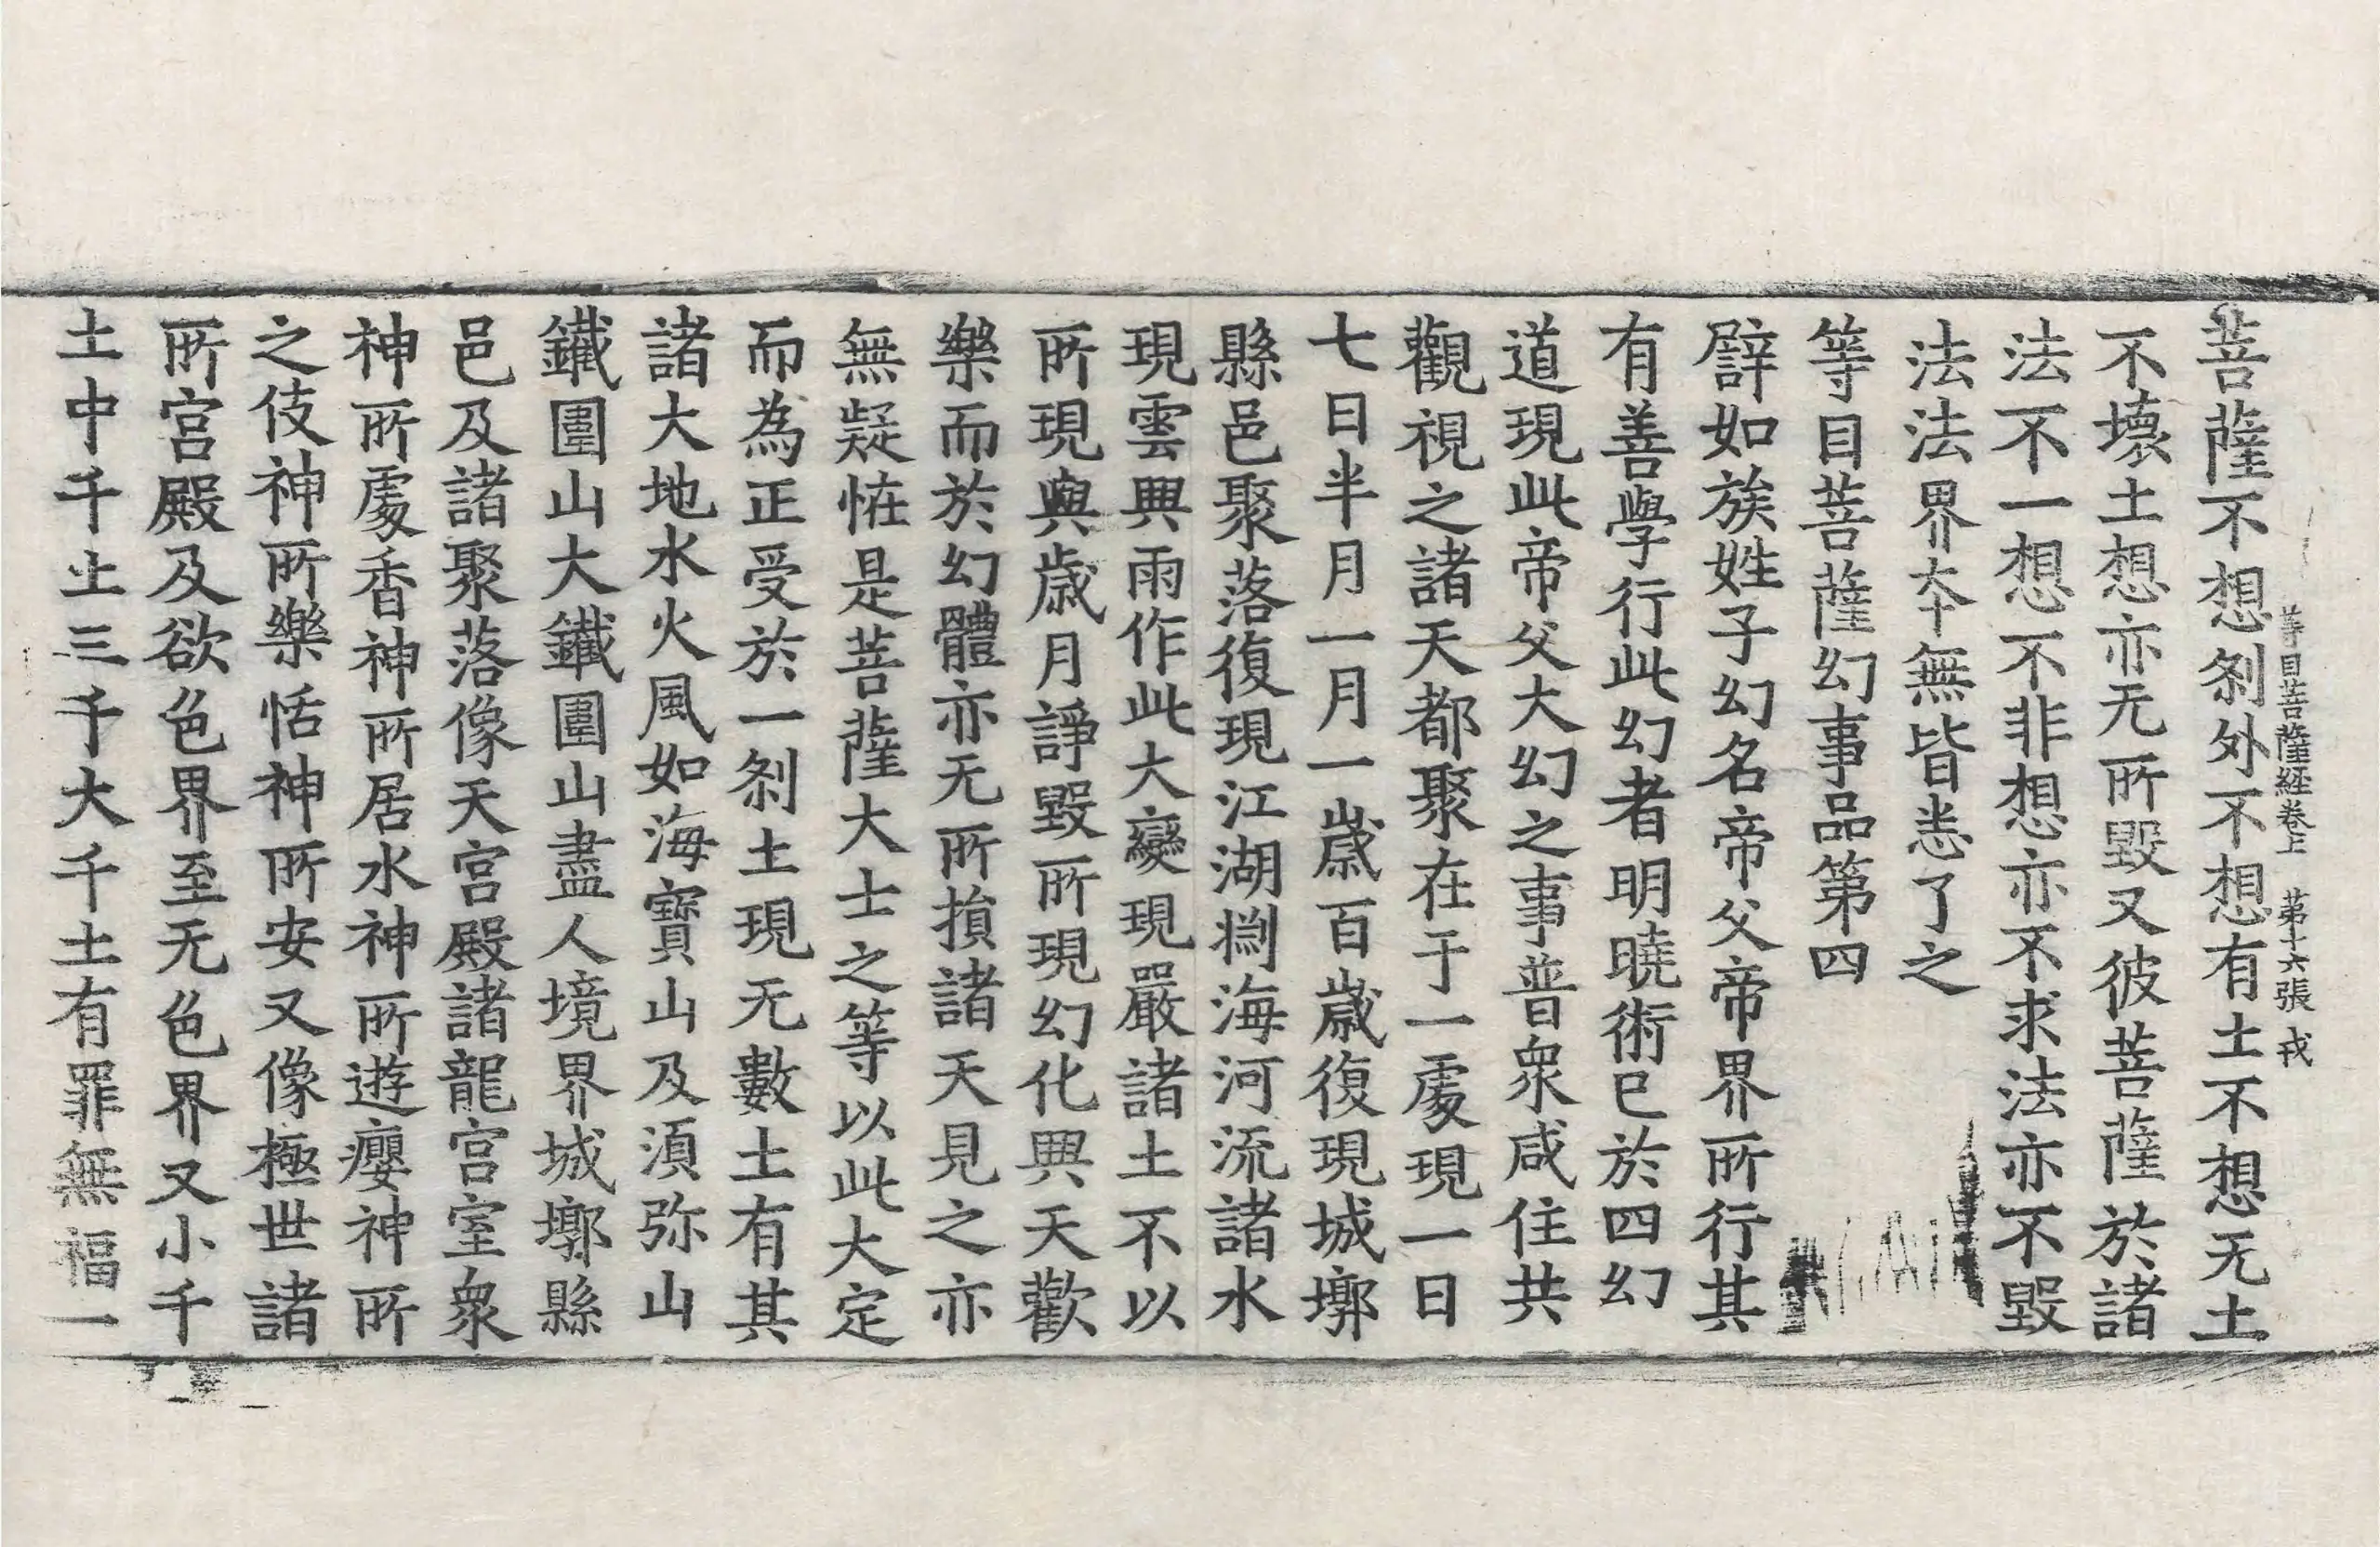 等目菩薩経卷上　第十六張　戎
菩薩不想刹外不想有土不想无土
不壞土想亦无所毀又彼菩薩於諸
法不一想不非想亦不求法亦不毀
法法界夲無皆悉了之
等目菩薩幻事品第四
辟如族姓子幻名帝父帝界所行其
有善學行此幻者明曉術已於四幻
道現此帝父大幻之事普衆咸住共
觀視之諸天都聚在于一處現一日
七日半月一月一歲百歲復現城墎
縣邑聚落復現江湖淵海河流諸水
現雲興雨作此大變現嚴諸土不以
所現與歲月諍毀所現幻化興天歡
樂而於幻體亦无所損諸天見之亦
無疑恠是菩薩大士之等以此大定
而為正受於一刹土現无數土有其
諸大地水火風如海寶山及湏弥山
鐵圍山大鐵圍山盡人境界城墎縣
邑及諸聚落像天宮殿諸龍宮室衆
神所處香神所居水神所遊癭神所
之伎神所樂恬神所安又像極世諸
所宮殿及欲色界至无色界又小千
土中千土三千大千土有罪無福一